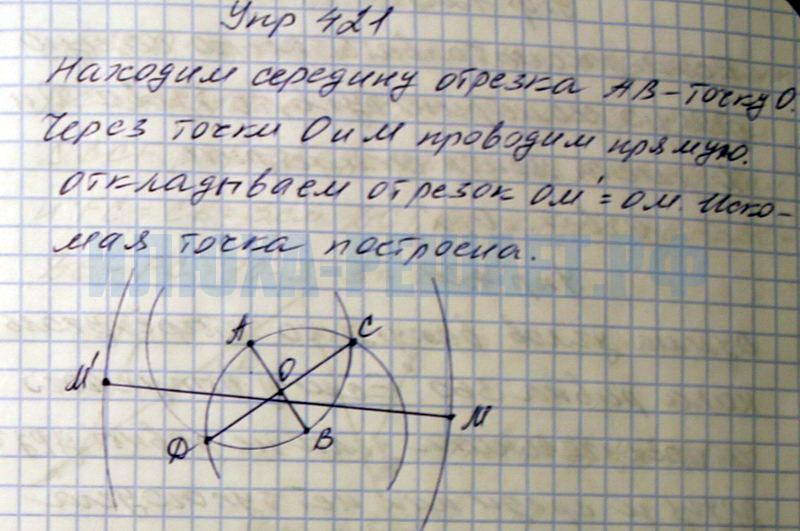 Упр 421
Находим середину отрезка АВ-точку О.
Через точки О и М проводим прямую.
Откладываем отрезок ОМ'=ОМ. Иско-
мая точка построена.
ИЛЮХА-РЕШАЕТ.РФ
А
С
М'
О
М
D
В